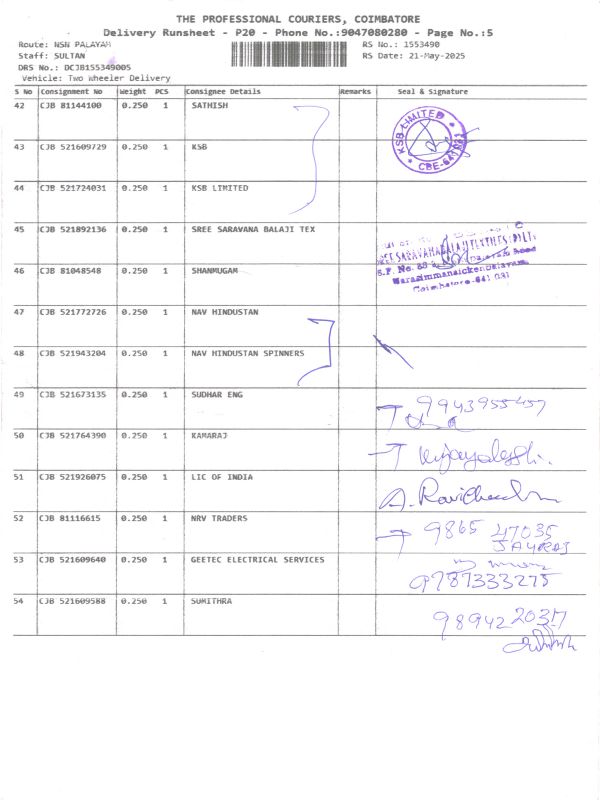 THE PROFESSIONAL COURIERS, COIMBATORE
Delivery Runsheet - P20 - Phone No.:9047080280 - Page No.:5
Route: NSN PALAYAM
RS No.: 1553490
Staff: SULTAN
RS Date: 21-May-2025
DRS No.: DCJB155349005
Vehicle: Two Wheeler Delivery
S No Consignment No Weight PCS Consignee Details Remarks Seal & Signature
42 CJB 81144100 0.250 1 SATHISH
KSB LIMITED
* CBE-641031 *
43 CJB 521609729 0.250 1 KSB
44 CJB 521724031 0.250 1 KSB LIMITED
45 CJB 521892136 0.250 1 SREE SARAVANA BALAJI TEX
SREE SARAVANABALAJI TEXTILES (P) LTD
S.F. No. Road
Narasimmanaickenpalayam,
Coimbatore-641 031
46 CJB 81048548 0.250 1 SHANMUGAM
47 CJB 521772726 0.250 1 NAV HINDUSTAN
48 CJB 521943204 0.250 1 NAV HINDUSTAN SPINNERS
49 CJB 521673135 0.250 1 SUDHAR ENG
9943955457
50 CJB 521764390 0.250 1 KAMARAJ
51 CJB 521926075 0.250 1 LIC OF INDIA
52 CJB 81116615 0.250 1 NRV TRADERS
9865 47035
JAYRAJ
53 CJB 521609640 0.250 1 GEETEC ELECTRICAL SERVICES
9787333275
54 CJB 521609588 0.250 1 SUMITHRA
98942 20317